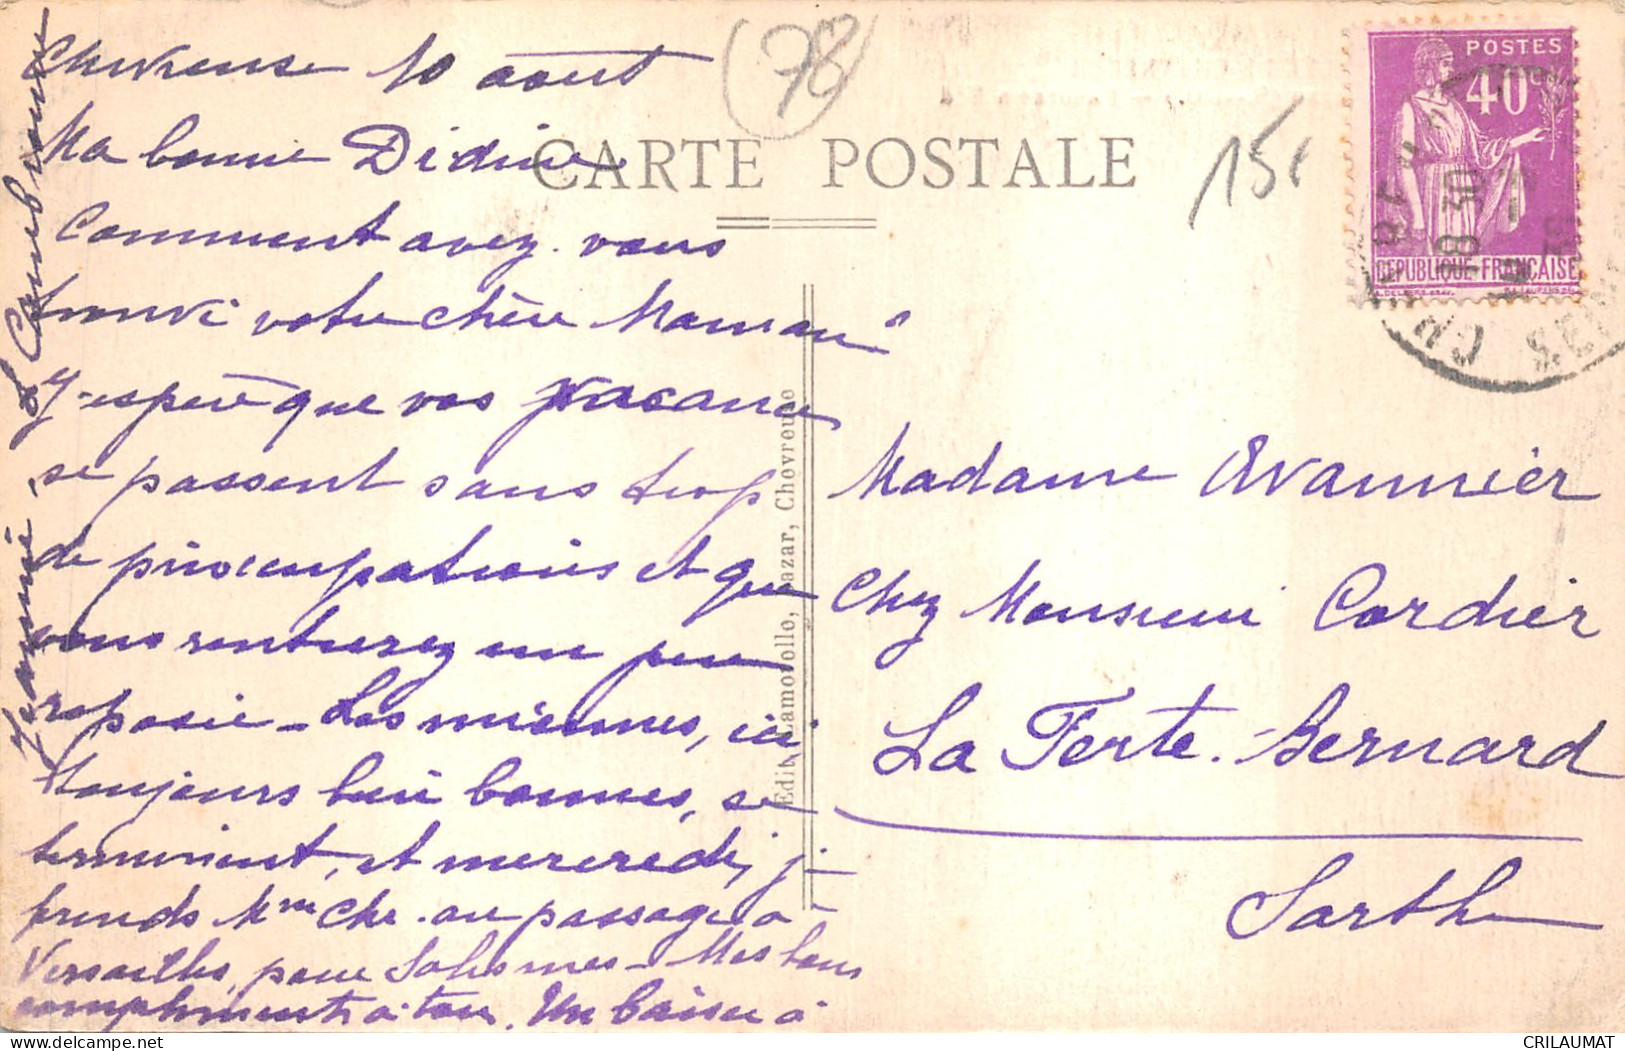 (78)
15€
POSTES
40c
RÉPUBLIQUE FRANÇAISE
CARTE POSTALE
Chevreuse 10 aout
Ma bonne Didine
Comment avez-vous
trouvé votre chère Maman
J'espère que vos vacances
se passent sans trop
de préoccupations et que
vous rentrerez un peu
reposée - Les miennes, ici,
toujours bien bonnes, se
terminent, et mercredi, je
prends Mme Che. au passage à
Versailles, pour Solesmes - Mes bons
compliments à tous. Un baiser à
Jeannine
Edit. Lamoriollo, Bazar, Chevreuse
Madame Avannier
Chez Monsieur Cordier
La Ferte-Bernard
Sarthe
CRILAUMAT